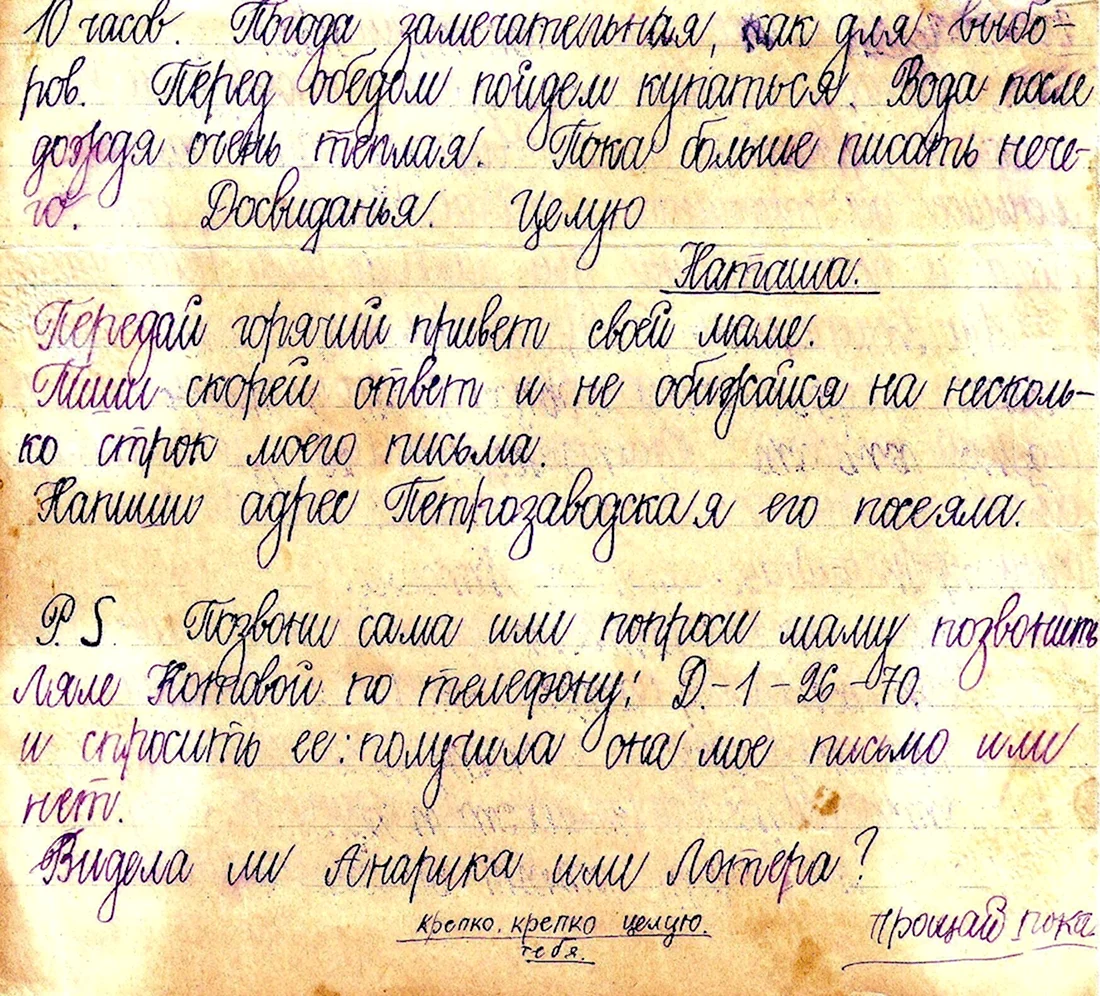 10 часов. Погода замечательная, как для выбо-
ров. Перед обедом пойдем купаться. Вода после
дождя очень теплая. Пока больше писать нече-
го. Досвиданья. Целую
Наташа.
Передай горячий привет своей маме.
Пиши скорей ответ и не обижайся на несколь-
ко строк моего письма.
Напиши адрес Петрозаводска я его посеяла.
P. S. Позвони сама или попроси маму позвонить
Ляле Котовой по телефону: Д-1-26-70.
и спросить ее: получила она мое письмо или
нет.
Видела ли Анарика или Лотера?
крепко, крепко целую.
тебя.
Прощай пока